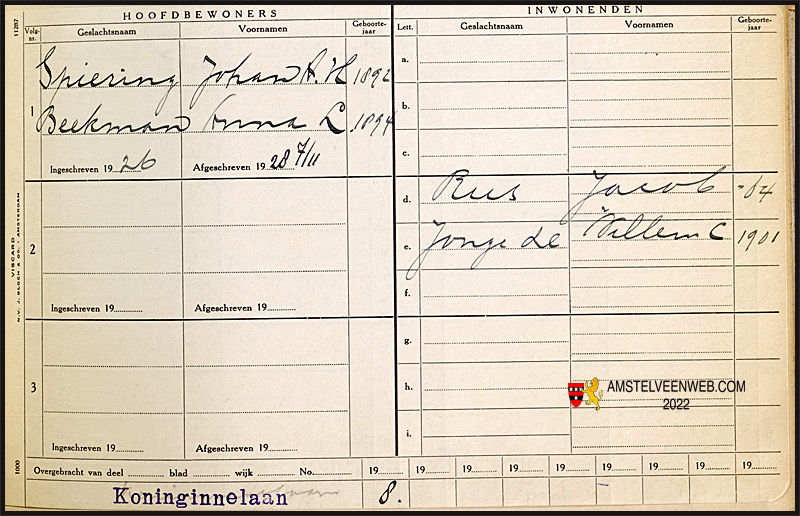 HOOFDBEWONERS
Volg-nr. Geslachtsnaam Voornamen Geboorte-jaar
Spiering Johan A. H 1892
1
Beekman Anna L 1894
Ingeschreven 19 26 Afgeschreven 19 28 7/11
2
Ingeschreven 19 Afgeschreven 19
3
Ingeschreven 19 Afgeschreven 19
INWONENDEN
Lett. Geslachtsnaam Voornamen Geboorte-jaar
a.
b.
c.
d. Rus Jacob -04
e. Jonge de Willem C 1901
f.
g.
h.
i.
AMSTELVEENWEB.COM
2022
Overgebracht van deel blad wijk No. 19 19 19 19 19 19 19 19 19
Koninginnelaan 8.
11287
VISCARD
N.V. J. BLOCH & CO. - AMSTERDAM
1000